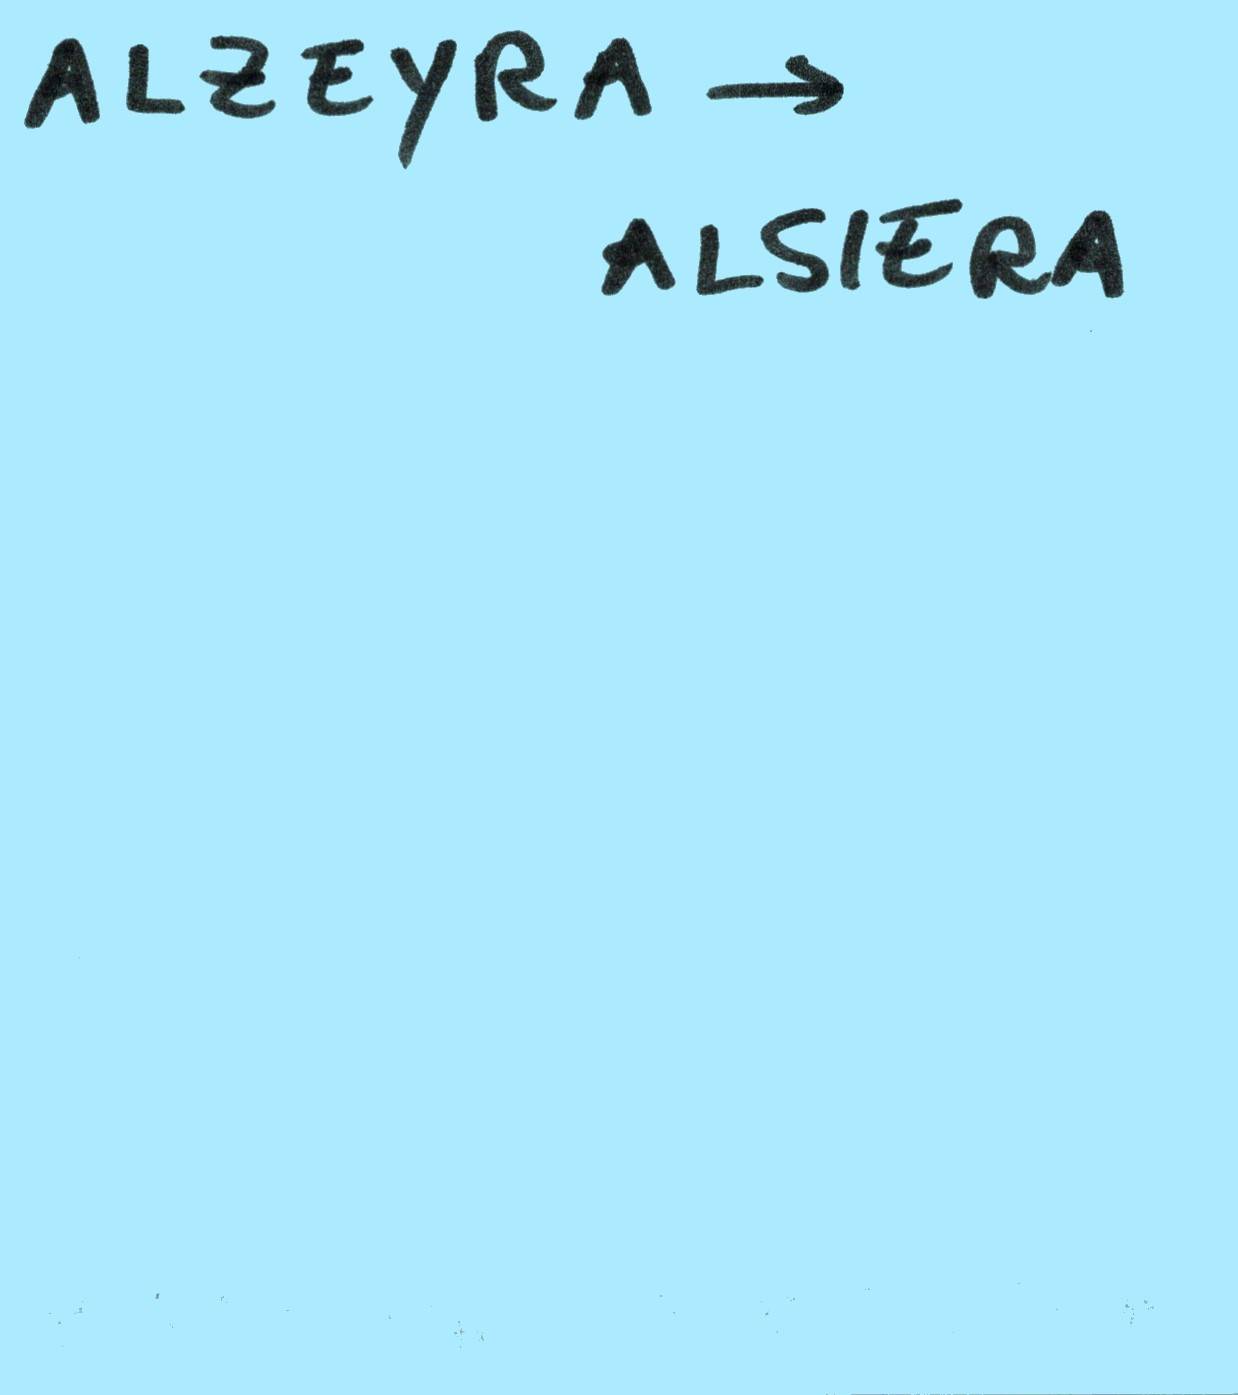 ALZEYRA →
ALSIERA